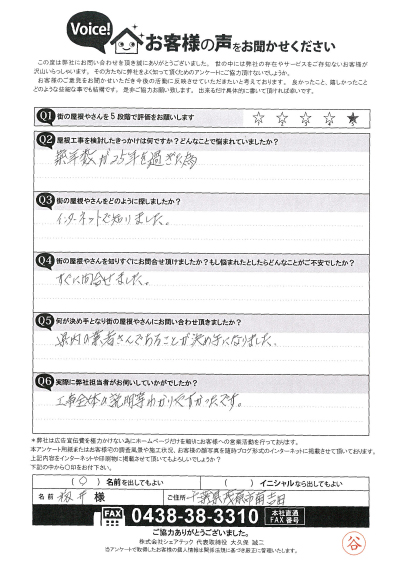 Voice!
お客様の声をお聞かせください
この度は弊社にお問い合わせを頂き誠にありがとうございました。世の中には弊社の存在やサービスをご存知ないお客様が
沢山いらっしゃいます。その方たちに弊社をよく知って頂くためのアンケートにご協力頂けないでしょうか。
お客様のご意見をお聞かせいただき今後の活動に反映させていただきたいと考えております。良かったこと、嬉しかったこと
どのような些細な事でも結構です。是非ご協力お願い致します。出来るだけ具体的に書いて頂ければ幸いです。
Q1 街の屋根やさんを5段階で評価をお願いします
1 2 3 4
Q2 屋根工事を検討したきっかけは何ですか？どんなことで悩まれていましたか？
築年数が25年を過ぎた為
Q3 街の屋根やさんをどのように探しましたか？
インターネットで知りました。
Q4 街の屋根やさんを知りすぐにお問合せ頂けましたか？もし悩まれたとしたらどんなことがご不安でしたか？
すぐに問合せました。
Q5 何が決め手となり街の屋根やさんにお問い合わせ頂きましたか？
県内の業者さんであることが決め手になりました。
Q6 実際に弊社担当者がお伺いしていかがでしたか？
工事全体の説明等わかりやすかったです。
＊弊社は広告宣伝費を極力かけない為にホームページだけを頼りにお客様への営業活動を行っております。
本アンケート用紙またはお客様宅の調査風景や施工状況、お客様の顔写真を随時ブログ形式のインターネットに掲載させて頂いております。
上記内容をインターネットや印刷物に掲載させて頂いてもよろしいでしょうか？
下記の中から○印をお付下さい。
(○) 名前を出してもよい ( ) イニシャルなら出してもよい
名前 板井 様 ご住所 千葉県茂原市南吉田
FAX 0438-38-3310 本社直通 FAX番号
ご協力ありがとうございました。
株式会社シェアテック 代表取締役 大久保 誠二
当アンケートで取得したお客様の個人情報は関係法規に基づき厳正に管理いたします。
谷